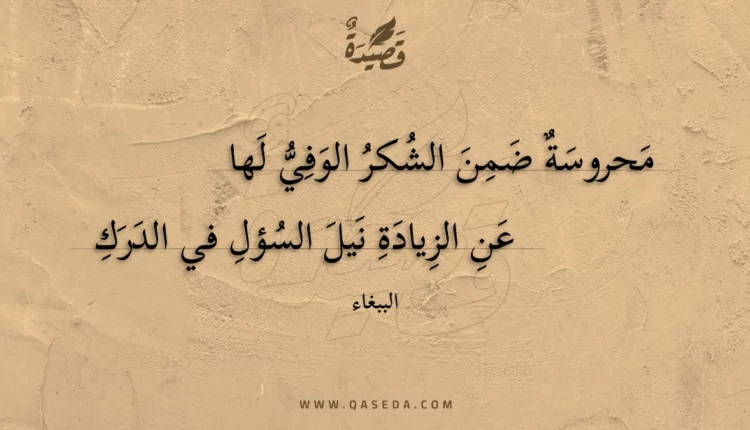 قَصِيدَةٌ
مَحروسَةٌ ضَمِنَ الشُكرُ الوَفِيُّ لَها
عَنِ الزِيادَةِ نَيلَ السُؤلِ في الدَرَكِ
الببغاء
WWW.QASEDA.COM